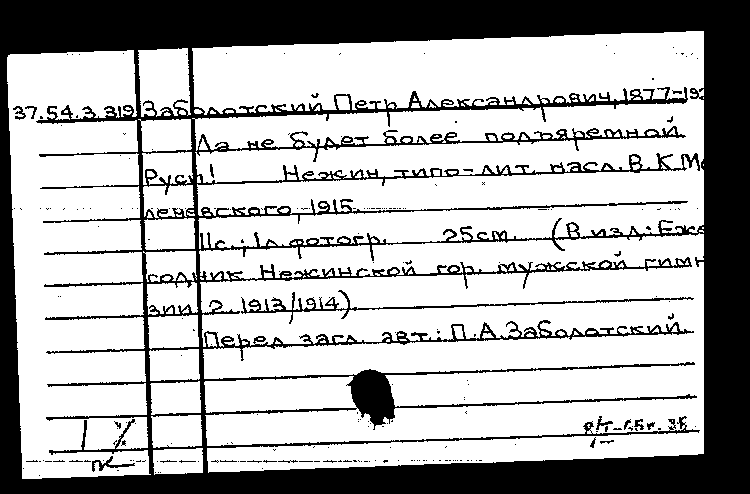 37.54.3.319 Заболотский, Петр Александрович, 1877-192
Да не будет более подъяремной
Руси! Нежин, типо-лит. насл. В.К.Ме
леневского, 1915.
11с.; 1л. фотогр. 25см. (В изд.: Еже
годник Нежинской гор. мужской гимн
зии 2. 1913/1914).
Перед загл. авт.: П.А.Заболотский.